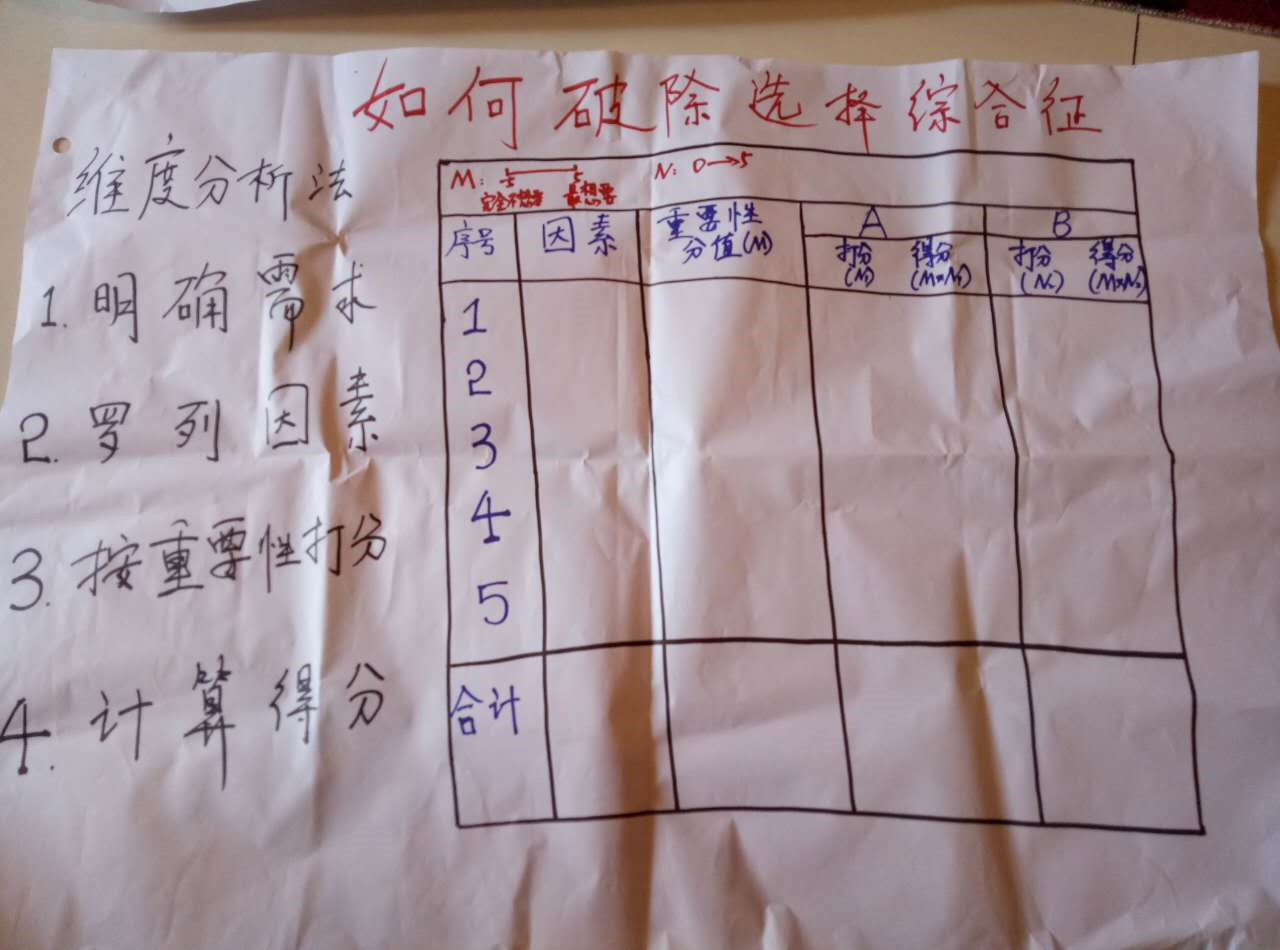 如何破除选择综合征
维度分析法
1. 明确需求
2. 罗列因素
3. 按重要性打分
4. 计算得分
M: -5 5 N: 0→5
完全不想要 最想要
序号 因素 重要性分值(M) A B
打分(N₁) 得分(M×N₁) 打分(N₂) 得分(M×N₂)
1
2
3
4
5
合计